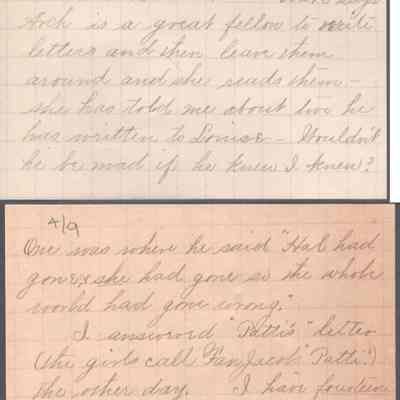 Arch is a great fellow to write
letters and then leave them
around and she reads them –
she has told me about two he
has written to Louise – Wouldn't
he be mad if he knew I knew?
4/9
One was where he said "Hal had
gone & she had gone so the whole
world had gone wrong."
I answered "Patti's" letter
(the girls call Fan Jacobs "Patti")
the other day. I have fourteen